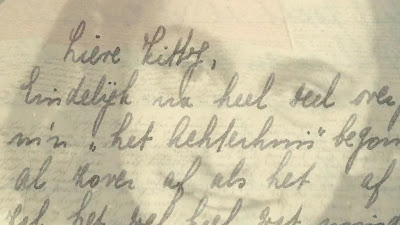 Lieve Kitty,
Eindelijk na heel veel over
m'n „het Achterhuis" begon
al zover af als het af
zal het wel heel wat